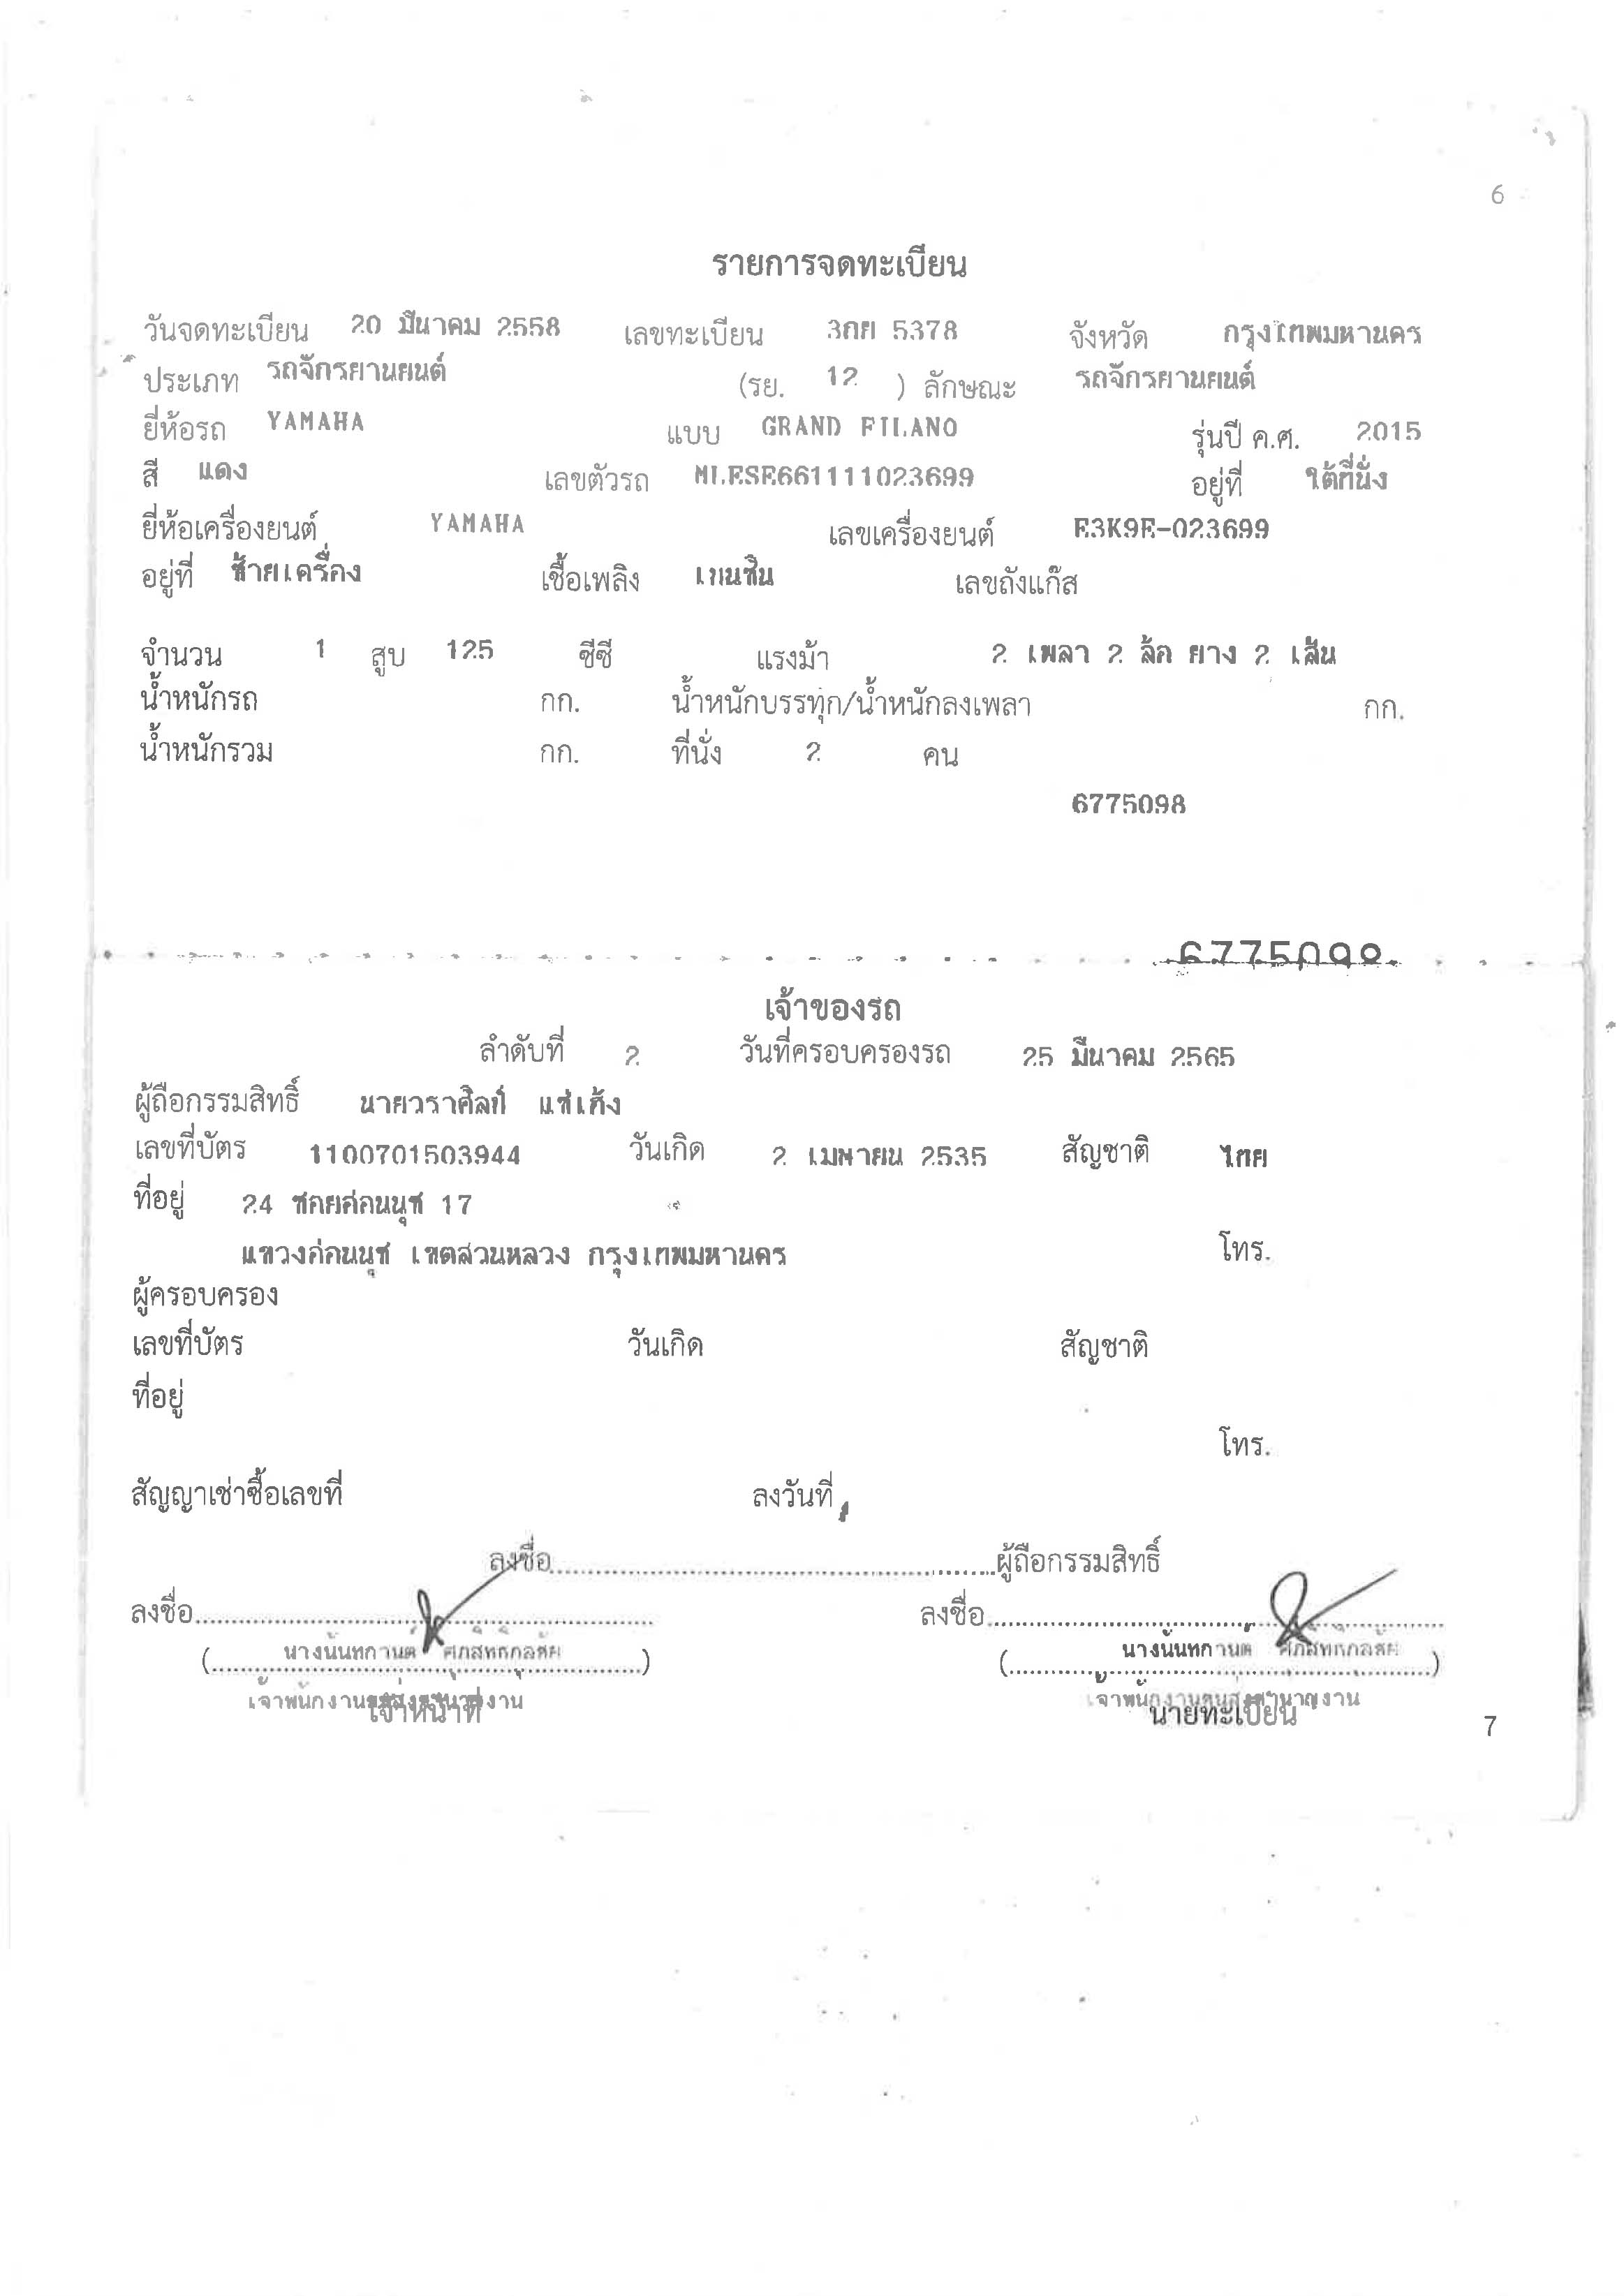 6
รายการจดทะเบียน
วันจดทะเบียน 20 มีนาคม 2558 เลขทะเบียน 3กย 5378 จังหวัด กรุงเทพมหานคร
ประเภท รถจักรยานยนต์ (รย. 12 ) ลักษณะ รถจักรยานยนต์
ยี่ห้อรถ YAMAHA แบบ GRAND FILANO รุ่นปี ค.ศ. 2015
สี แดง เลขตัวรถ MLESE661111023699 อยู่ที่ ใต้ที่นั่ง
ยี่ห้อเครื่องยนต์ YAMAHA เลขเครื่องยนต์ E3K9E-023699
อยู่ที่ ซ้ายเครื่อง เชื้อเพลิง เบนซิน เลขถังแก๊ส
จำนวน 1 สูบ 125 ซีซี แรงม้า 2 เพลา 2 ล้อ ยาง 2 เส้น
น้ำหนักรถ กก. น้ำหนักบรรทุก/น้ำหนักลงเพลา กก.
น้ำหนักรวม กก. ที่นั่ง 2 คน
6775098
6775098
เจ้าของรถ
ลำดับที่ 2 วันที่ครอบครองรถ 25 มีนาคม 2565
ผู้ถือกรรมสิทธิ์ นายวราศิลป์ แซ่เก้ง
เลขที่บัตร 1100701503944 วันเกิด 2 เมษายน 2535 สัญชาติ ไทย
ที่อยู่ 24 ซอยอ่อนนุช 17
แขวงอ่อนนุช เขตสวนหลวง กรุงเทพมหานคร โทร.
ผู้ครอบครอง
เลขที่บัตร วันเกิด สัญชาติ
ที่อยู่
โทร.
สัญญาเช่าซื้อเลขที่ ลงวันที่
ลงชื่อ ผู้ถือกรรมสิทธิ์
ลงชื่อ ลงชื่อ
( นางนันทกานต์ ) ( นางนันทกานต์ )
เจ้าพนักงานขนส่งชำนาญงาน เจ้าพนักงานขนส่งชำนาญงาน
เจ้าหน้าที่ นายทะเบียน
7